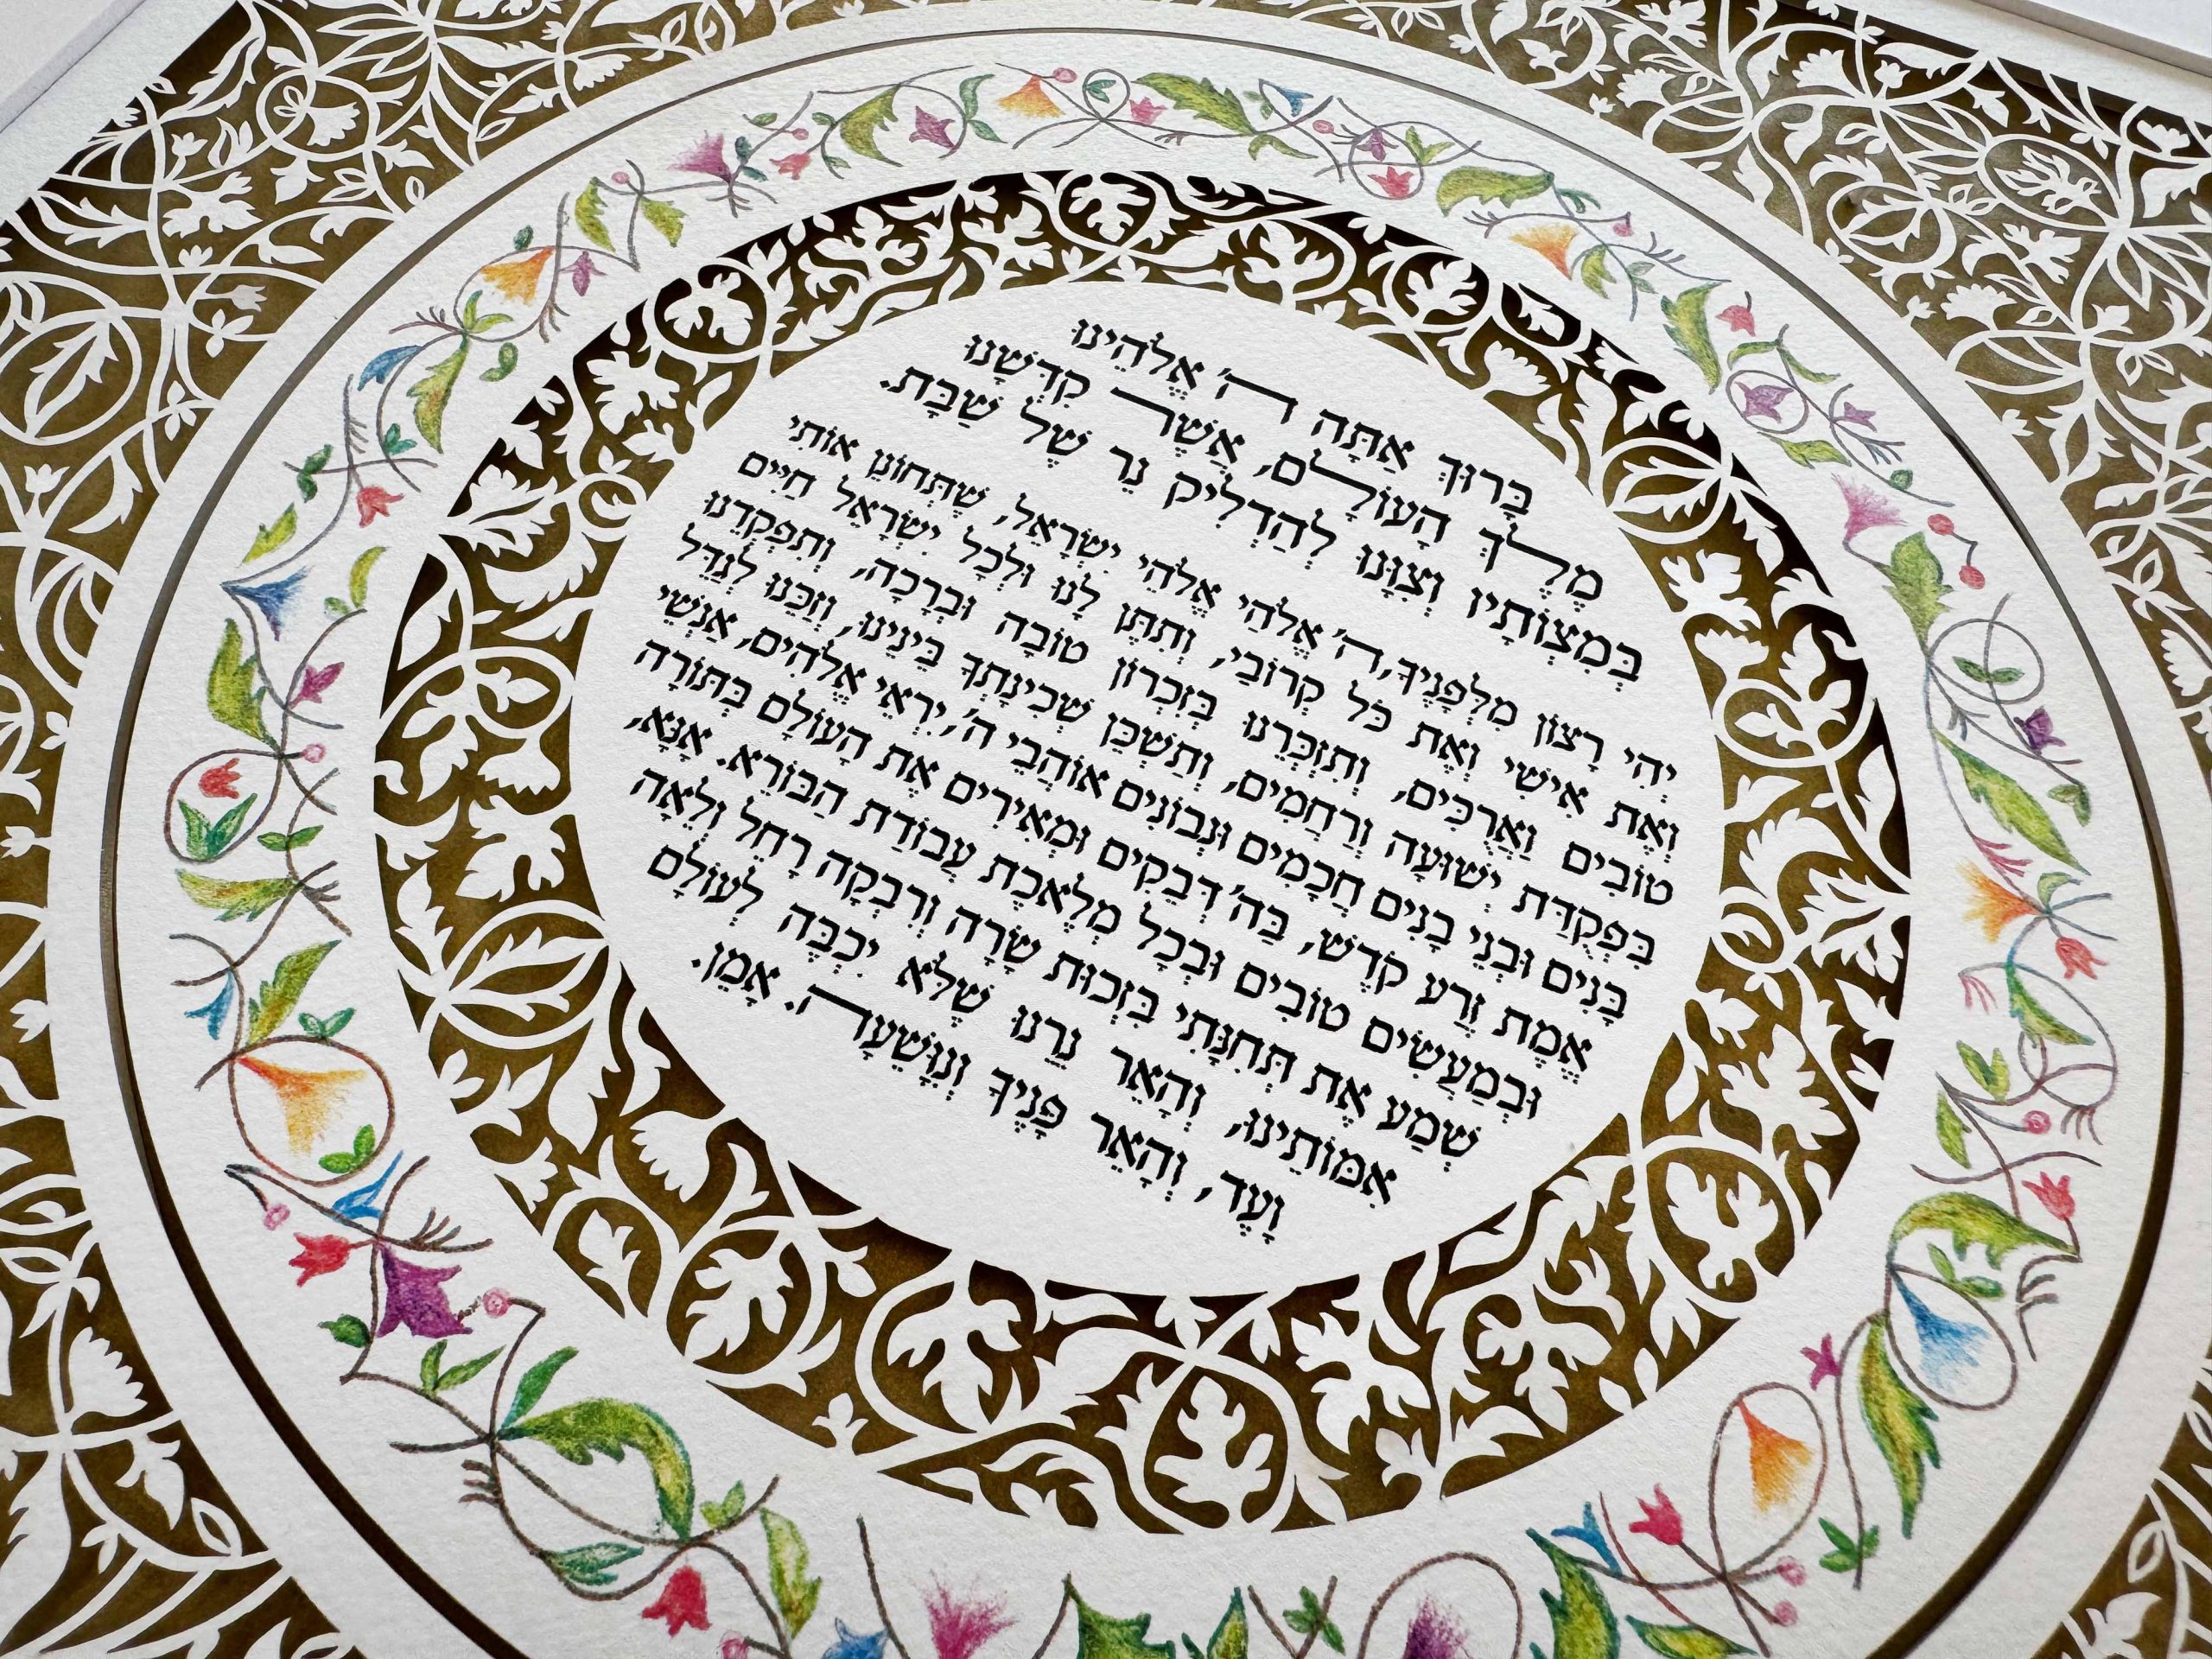 בָּרוּךְ אַתָּה ה' אֱלֹהֵינוּ
מֶלֶךְ הָעוֹלָם, אֲשֶׁר קִדְּשָׁנוּ
בְּמִצְוֹתָיו וְצִוָּנוּ לְהַדְלִיק נֵר שֶׁל שַׁבָּת.
יְהִי רָצוֹן מִלְּפָנֶיךָ, ה' אֱלֹהַי אֱלֹהֵי יִשְׂרָאֵל, שֶׁתְּחוֹנֵן אוֹתִי
וְאֶת אִישִׁי וְאֶת כָּל קְרוֹבַי, וְתִתֵּן לָנוּ וּלְכָל יִשְׂרָאֵל חַיִּים
טוֹבִים וַאֲרֻכִּים, וְתִזְכְּרֵנוּ בְּזִכְרוֹן טוֹבָה וּבְרָכָה, וְתִפְקְדֵנוּ
בִּפְקֻדַּת יְשׁוּעָה וְרַחֲמִים, וְתַשְׁכֵּן שְׁכִינָתְךָ בֵּינֵינוּ, וְזַכֵּנוּ לְגַדֵּל
בָּנִים וּבְנֵי בָנִים חֲכָמִים וּנְבוֹנִים אוֹהֲבֵי ה', יִרְאֵי אֱלֹהִים, אַנְשֵׁי
אֱמֶת זֶרַע קֹדֶשׁ, בַּה' דְּבֵקִים וּמְאִירִים אֶת הָעוֹלָם בְּתּוֹרָה
וּבְמַעֲשִׂים טוֹבִים וּבְכָל מְלֶאכֶת עֲבוֹדַת הַבּוֹרֵא. אָנָּא,
שְׁמַע אֶת תְּחִנָּתִי בִּזְכוּת שָׂרָה וְרִבְקָה רָחֵל וְלֵאָה
אִמּוֹתֵינוּ, וְהָאֵר נֵרֵנוּ שֶׁלֹּא יִכְבֶּה לְעוֹלָם
וָעֶד, וְהָאֵר פָּנֶיךָ וְנִוָּשֵׁעָה. אָמֵן.